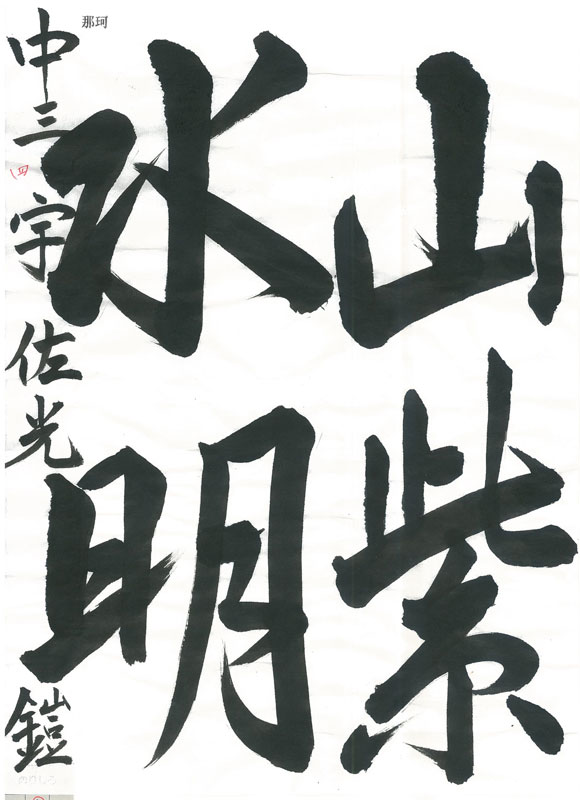 山紫
水明
中三 宇佐光 鎧
那珂
四